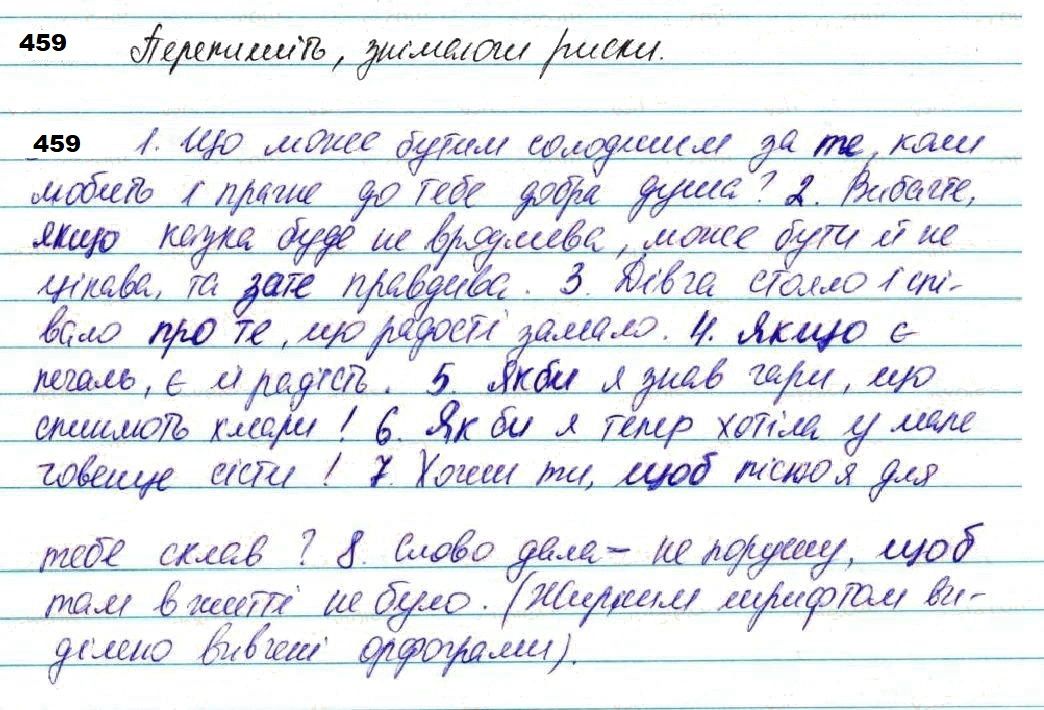 459 Перепишіть, знімаючи риски.
459 1. Що може бути солодшим за те, коли
любить і прагне до тебе добра душа? 2. Вибачте,
якщо казка буде не вродлива, може бути й не
цікава, та зате правдива. 3. Дівча стояло і спі-
вало про те, що радості замало. 4. Якщо є
печаль, є й радість. 5. Якби я знав чари, що
спиняють хмари! 6. Як би я тепер хотіла у мале
човенце сісти! 7. Хочеш ти, щоб пісню я для
тебе склав? 8. Слово дала – не порушу, що б
там в житті не було. (Жирним шрифтом ви-
ділено вивчені орфограми).